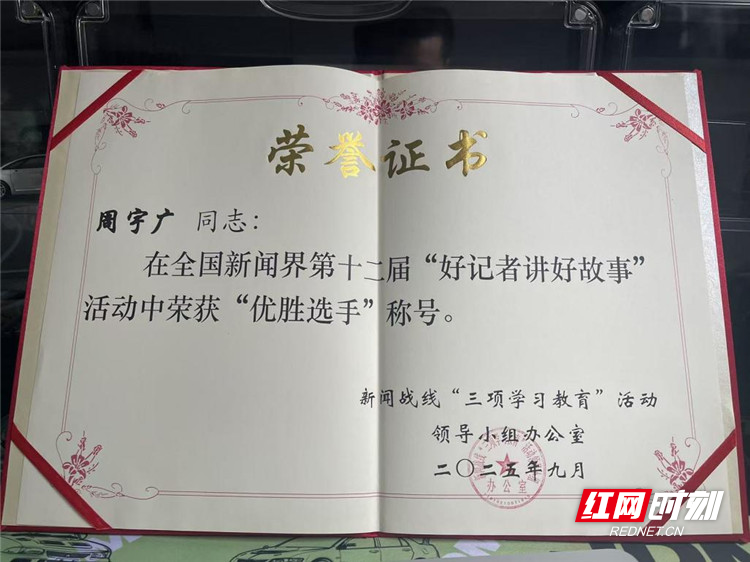 荣誉证书
周宇广 同志：
在全国新闻界第十二届“好记者讲好故事”
活动中荣获“优胜选手”称号。
新闻战线“三项学习教育”活动
领导小组办公室
二〇二五年九月
办公室
红网时刻
REDNET.CN